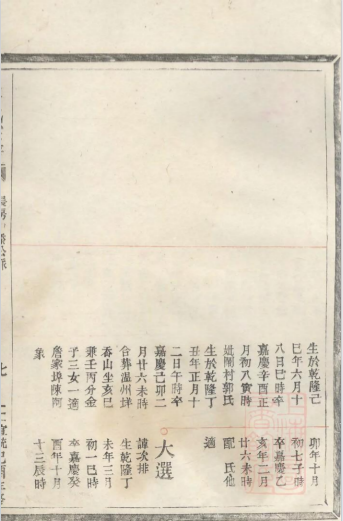 生於乾隆己
巳年六月十
八日巳時卒
嘉慶辛酉正
月初八寅時
妣閘村郭氏
生於乾隆丁
丑年正月十
二日午時卒
嘉慶己卯二
月廿六未時
合葬溫州垟
香山坐亥巳
兼壬丙分金
子三女一適
詹家埠陳阿
象
卯年十月
初七子時
卒嘉慶乙
亥年二月
廿六未時
配 氏他
適
大選
諱次排
生乾隆丁
未年三月
初一巳時
卒嘉慶癸
酉年十月
十三辰時
七